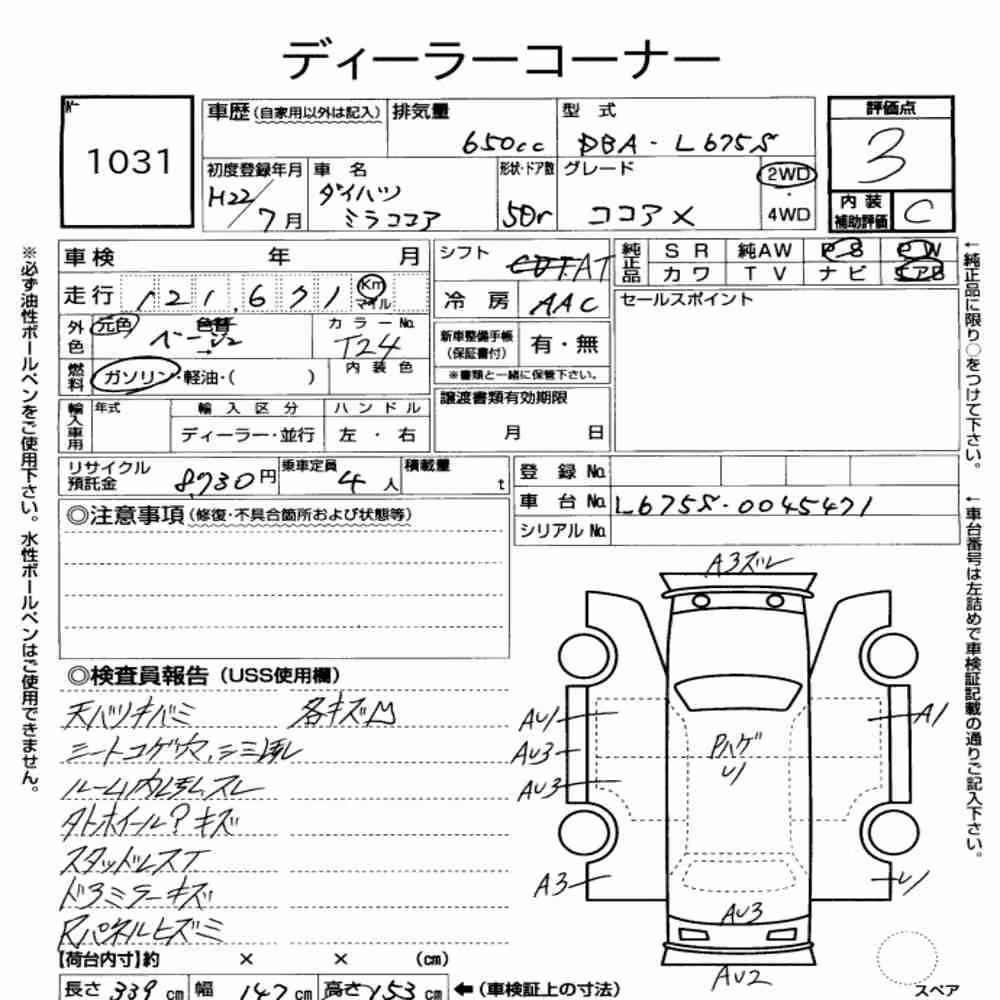 ディーラーコーナー
1031
車歴(自家用以外は記入) 排気量 型 式 評価点
650cc DBA-L675S 3
初度登録年月 車 名 形状・ドア数 グレード 2WD
・
4WD
H22/7月 ダイハツ ミラココア 5Dr ココアX
内 装 補助評価 C
車検 年 月
シフト AT
純正品 SR 純AW PS PW
カワ TV ナビ エアB
走行 121,671 Km マイル
冷 房 AAC
セールスポイント
外色 元色 色替 カラーNo.
ベージュ→ T24
新車整備手帳(保証書付) 有・無
※書類と一緒に保管下さい。
燃料 ガソリン・軽油・( ) 内装色
譲渡書類有効期限
月 日
輸入車用 年式 輸入区分 ハンドル
ディーラー・並行 左・右
リサイクル預託金 8,730円 乗車定員 4人 積載量 t
登 録 No.
車 台 No. L675S-0045471
シリアル No.
◎注意事項(修復・不具合箇所および状態等)
◎検査員報告(USS使用欄)
天バリキバミ 各キズ凹
シートコゲ穴、シミ汚レ
ルーム内汚レ、スレ
タトホイール? キズ
スタッドレスT
ドアミラーキズ
Rパネルヒズミ
【荷台内寸】約 × × (cm)
長さ 339cm 幅 147cm 高さ 153cm ←(車検証上の寸法)
A3ズレ
AU1
A1
AU3
Pハゲ
U1
AU3
A3
U1
AU3
AU2
スペア
※必ず油性ボールペンをご使用下さい。水性ボールペンはご使用できません。
←純正品に限り○をつけて下さい。
←車台番号は左詰めで車検証記載の通りご記入下さい。